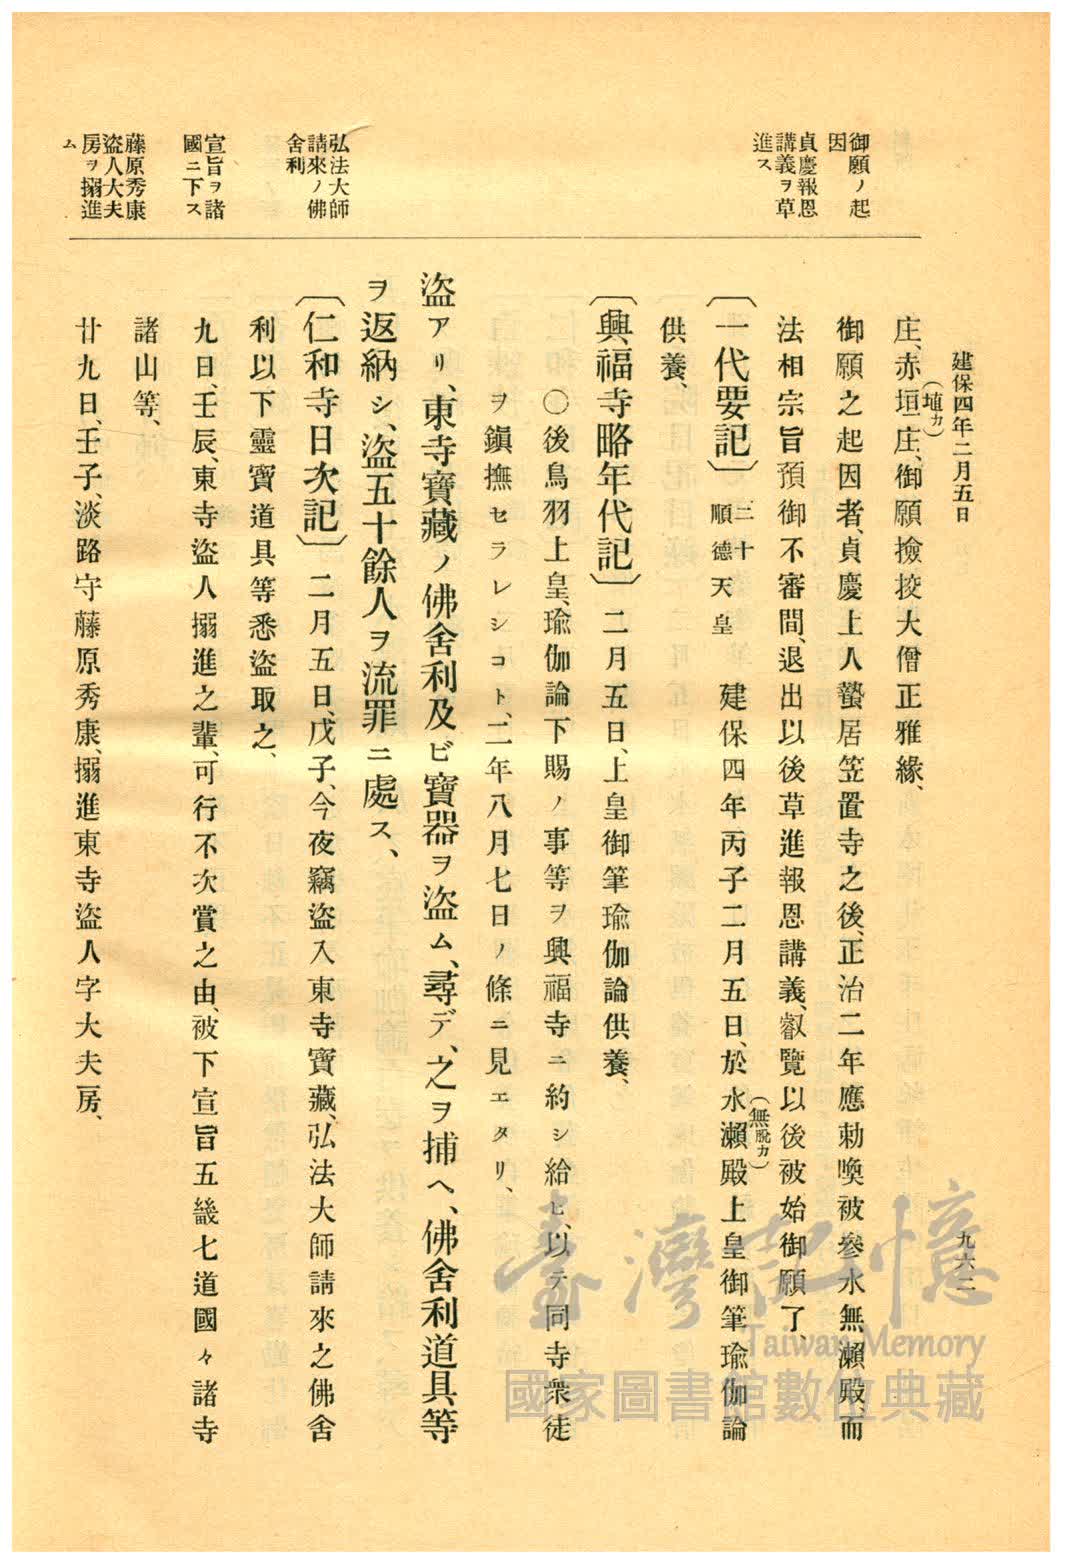 建保四年二月五日
九六二
御願ノ起
因
貞慶報恩
講義ヲ草
進ス
弘法大師
請來ノ佛
舍利
宣旨ヲ諸
國ニ下ス
藤原秀康
盜人大夫
房ヲ搦進
ム
庄、赤垣庄、御願撿挍大僧正雅緣、
(埴カ)
御願之起因者、貞慶上人蟄居笠置寺之後、正治二年應勅喚被參水無瀨殿、而
法相宗旨預御不審間、退出以後草進報恩講義、叡覽以後被始御願了、
〔一代要記〕三十順德天皇 建保四年丙子二月五日、於水瀨殿上皇御筆瑜伽論
(無脫カ)
供養、
〔興福寺略年代記〕二月五日、上皇御筆瑜伽論供養、
〇後鳥羽上皇、瑜伽論下賜ノ事等ヲ興福寺ニ約シ給ヒ、以テ同寺衆徒
ヲ鎭撫セラレシコト、二年八月七日ノ條ニ見エタリ、
盜アリ、東寺寶藏ノ佛舍利及ビ寶器ヲ盜ム、尋デ、之ヲ捕ヘ、佛舍利道具等
ヲ返納シ、盜五十餘人ヲ流罪ニ處ス、
〔仁和寺日次記〕二月五日、戊子、今夜竊盜入東寺寶藏、弘法大師請來之佛舍
利以下靈寶道具等悉盜取之、
九日、壬辰、東寺盜人搦進之輩、可行不次賞之由、被下宣旨五畿七道國々諸寺
諸山等、
廿九日、壬子、淡路守藤原秀康、搦進東寺盜人字大夫房、
臺灣記憶
Taiwan Memory
國家圖書館數位典藏